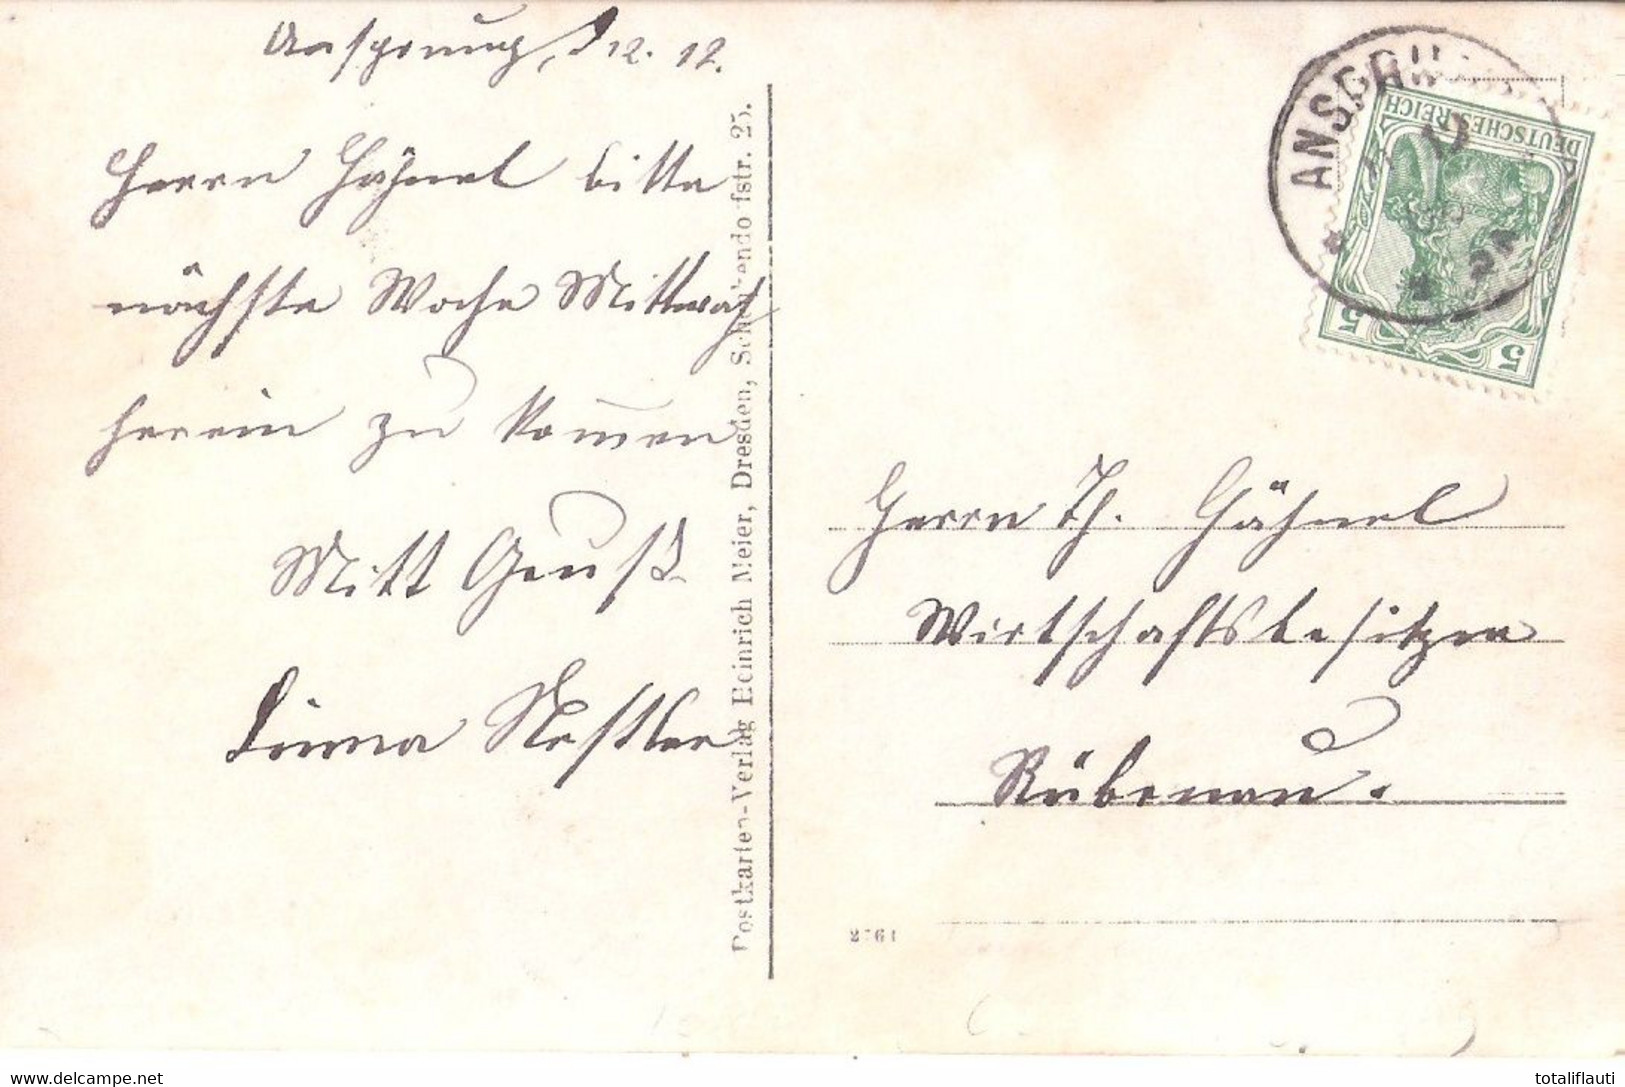 Ansprung, d 12. 12.
Herrn Hähnel bitte
nächste Woche Mittwoch
herein zu kommen
Mitt Gruß
Linna Nestler
Postkarten-Verlag Heinrich Meier, Dresden, str. 25.
ANSPRU
DEUTSCHES REICH
5 5
Herrn Th. Hähnel
Wirtschaftsbesitzer
Rübenau.
www.delcampe.net
totaliflauti